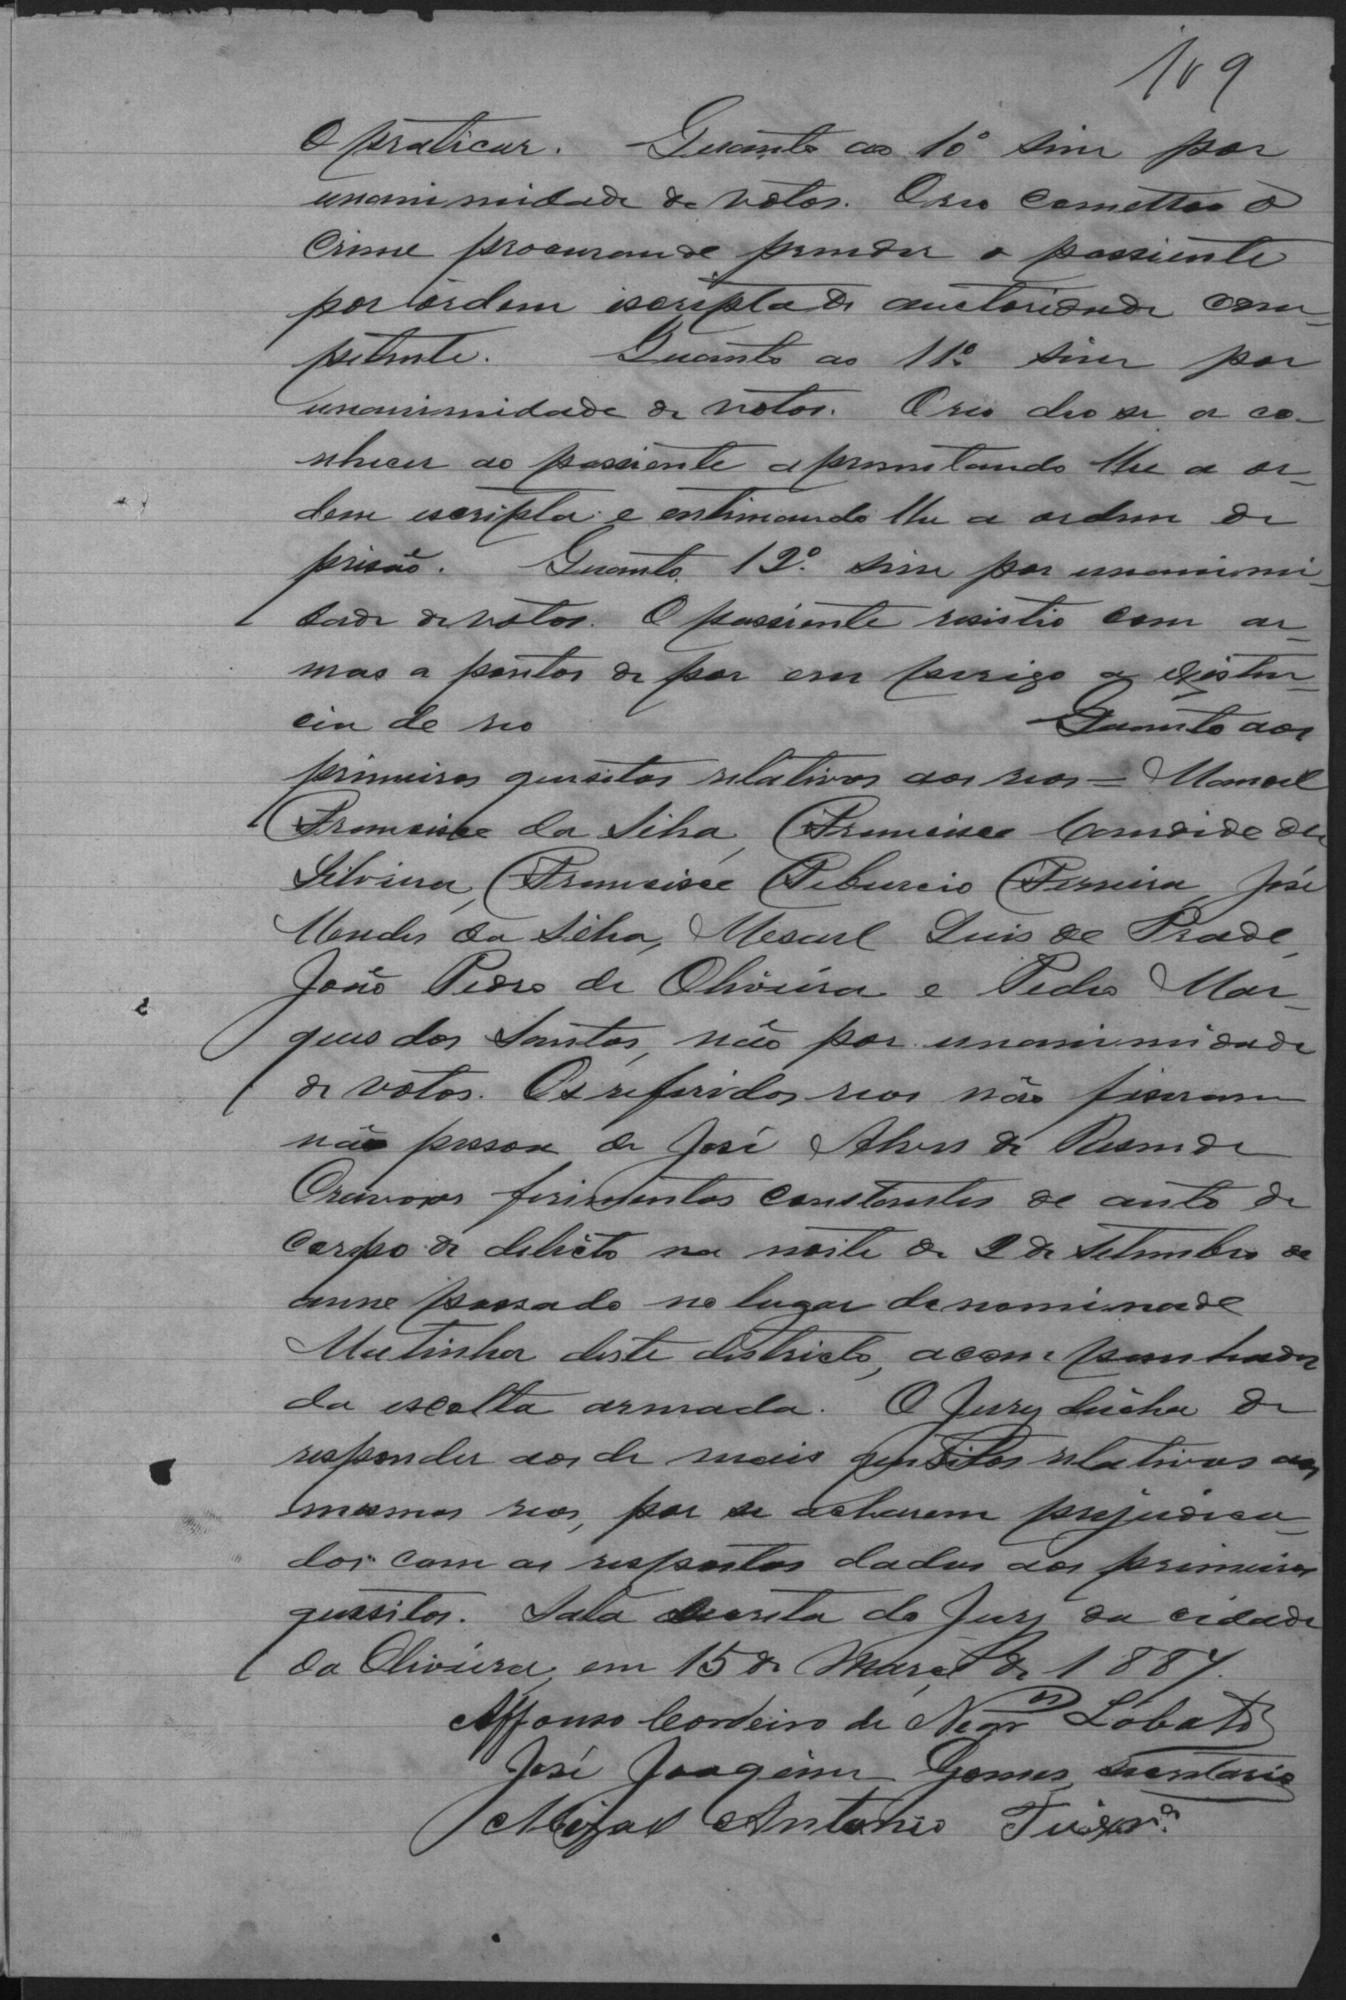 109
o praticar. Quanto ao 10º sim por
unanimidade de votos. O reo cometteo o
crime procurando prender o passiente
por ordem iscripta de auctoridade com-
petente. Quanto ao 11º sim por
unanimidade de votos. O reo deo se a co-
nhecer ao passiente apresentando lhe a or-
dem escripta e entimando lhe a ordem de
prisão. Quanto 12º sim por unanimi-
dade de votos. O passiente resistio com ar-
mas a pontos de por em perigo a existen-
cia de reo Quanto aos
primeiros quesitos relativos aos reos = Manoel
Francisco da Silva, Francisco Candido da
Silveira, Francisco Teburcio Ferreira, José
Mendes da Silva, Luis de Prado,
João Pedro de Oliveira e Pedro Mar-
ques dos Santos, não por unanimidade
de votos. Os referidos reos não fiseram
não pessoa de José Alves de Resende
Cravo os ferimentos constantes de auto de
corpo de delicto na noite de 2 de Setembro de
anno passado no lugar denominado
Matinha deste districto, acompanhados
da escolta armada. O Jury deicha de
responder aos de mais quesitos relativos aos
mesmos reos, por se acharem prejudica-
dos com as respostas dadas aos primeiros
quesitos. Sala secreta do Jury da cidade
da Oliveira, em 15 de Março de 1887.
Affonso Cordeiro de Negros Lobato
José Joaquim Gomes, secretario
Antonio